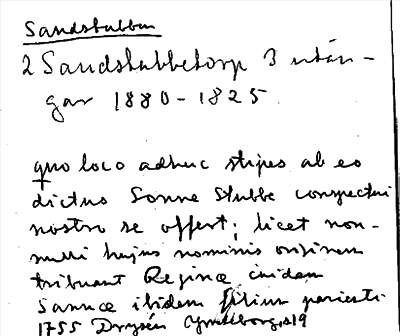 Sandstubben
2 Sandstubbetorp 3 utän-
gar 1880-1825
quo loco adhuc stipes ab eo
dictus Sonne Stubbe conspectui
nostro se offert; licet non-
nulli hujus nominis originem
tribuant Reginæ cuidam
Sannæ ibidem filium parienti
1755 Drysén